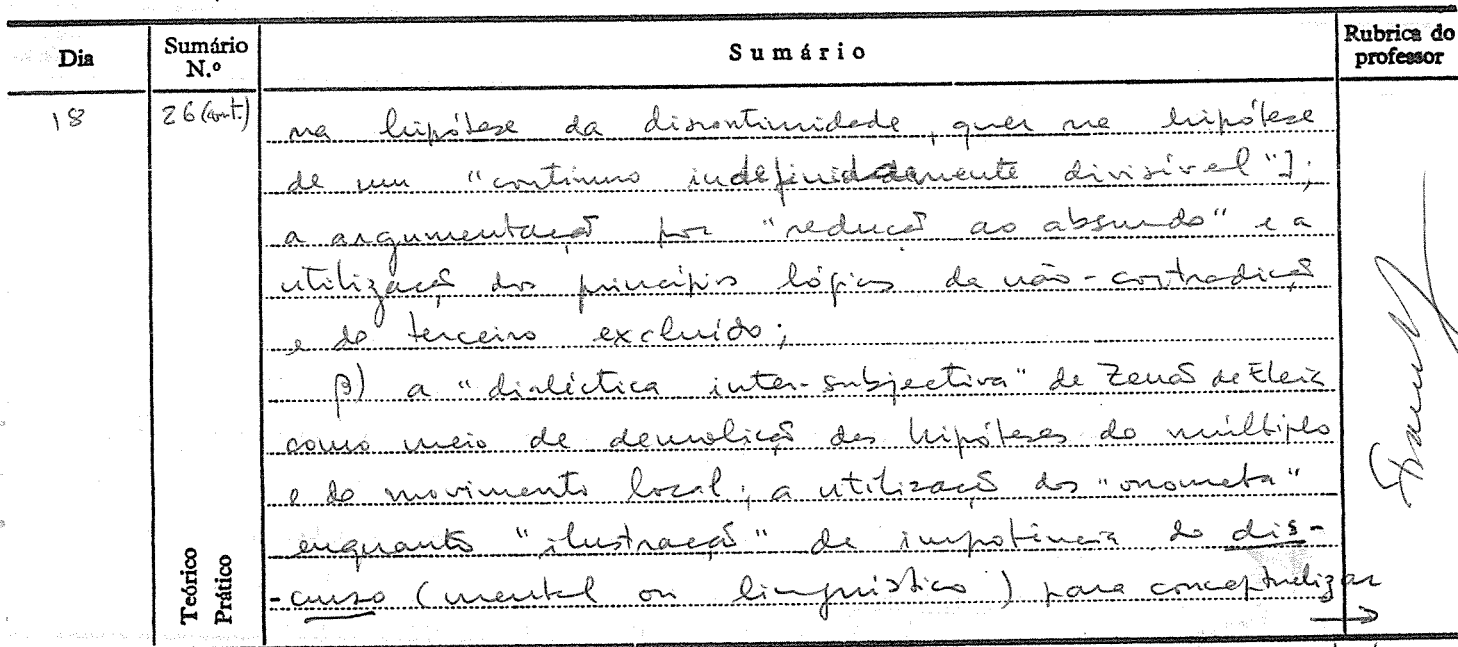 Dia Sumário N.º Sumário Rubrica do professor
18 26 (cont.) na hipótese da discontinuidade, quer na hipótese
de um "contínuo indefinidademente divisível"];
a argumentação por "redução ao absurdo" e a
utilização dos princípios lógicos da não-contradição
e do terceiro excluído;
β) a "dialéctica inter-subjectiva" de Zenão de Eleia
como meio de demolição das hipóteses do múltiplo
e do movimento local; a utilização dos "onomata"
enquanto "ilustração" da impotência do dis-
-curso (mental ou linguístico) para conceptualizar
→
Teórico
Prático